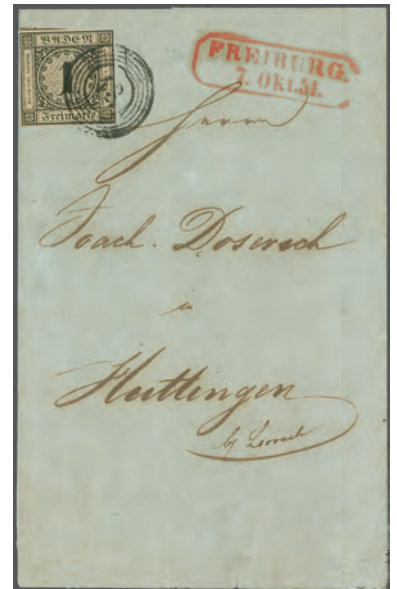 BADEN
1
Freimarke
FREIBURG.
7. OKt.51.
Herrn
Joach. Dosersch
in
Huttingen
by Lörrach